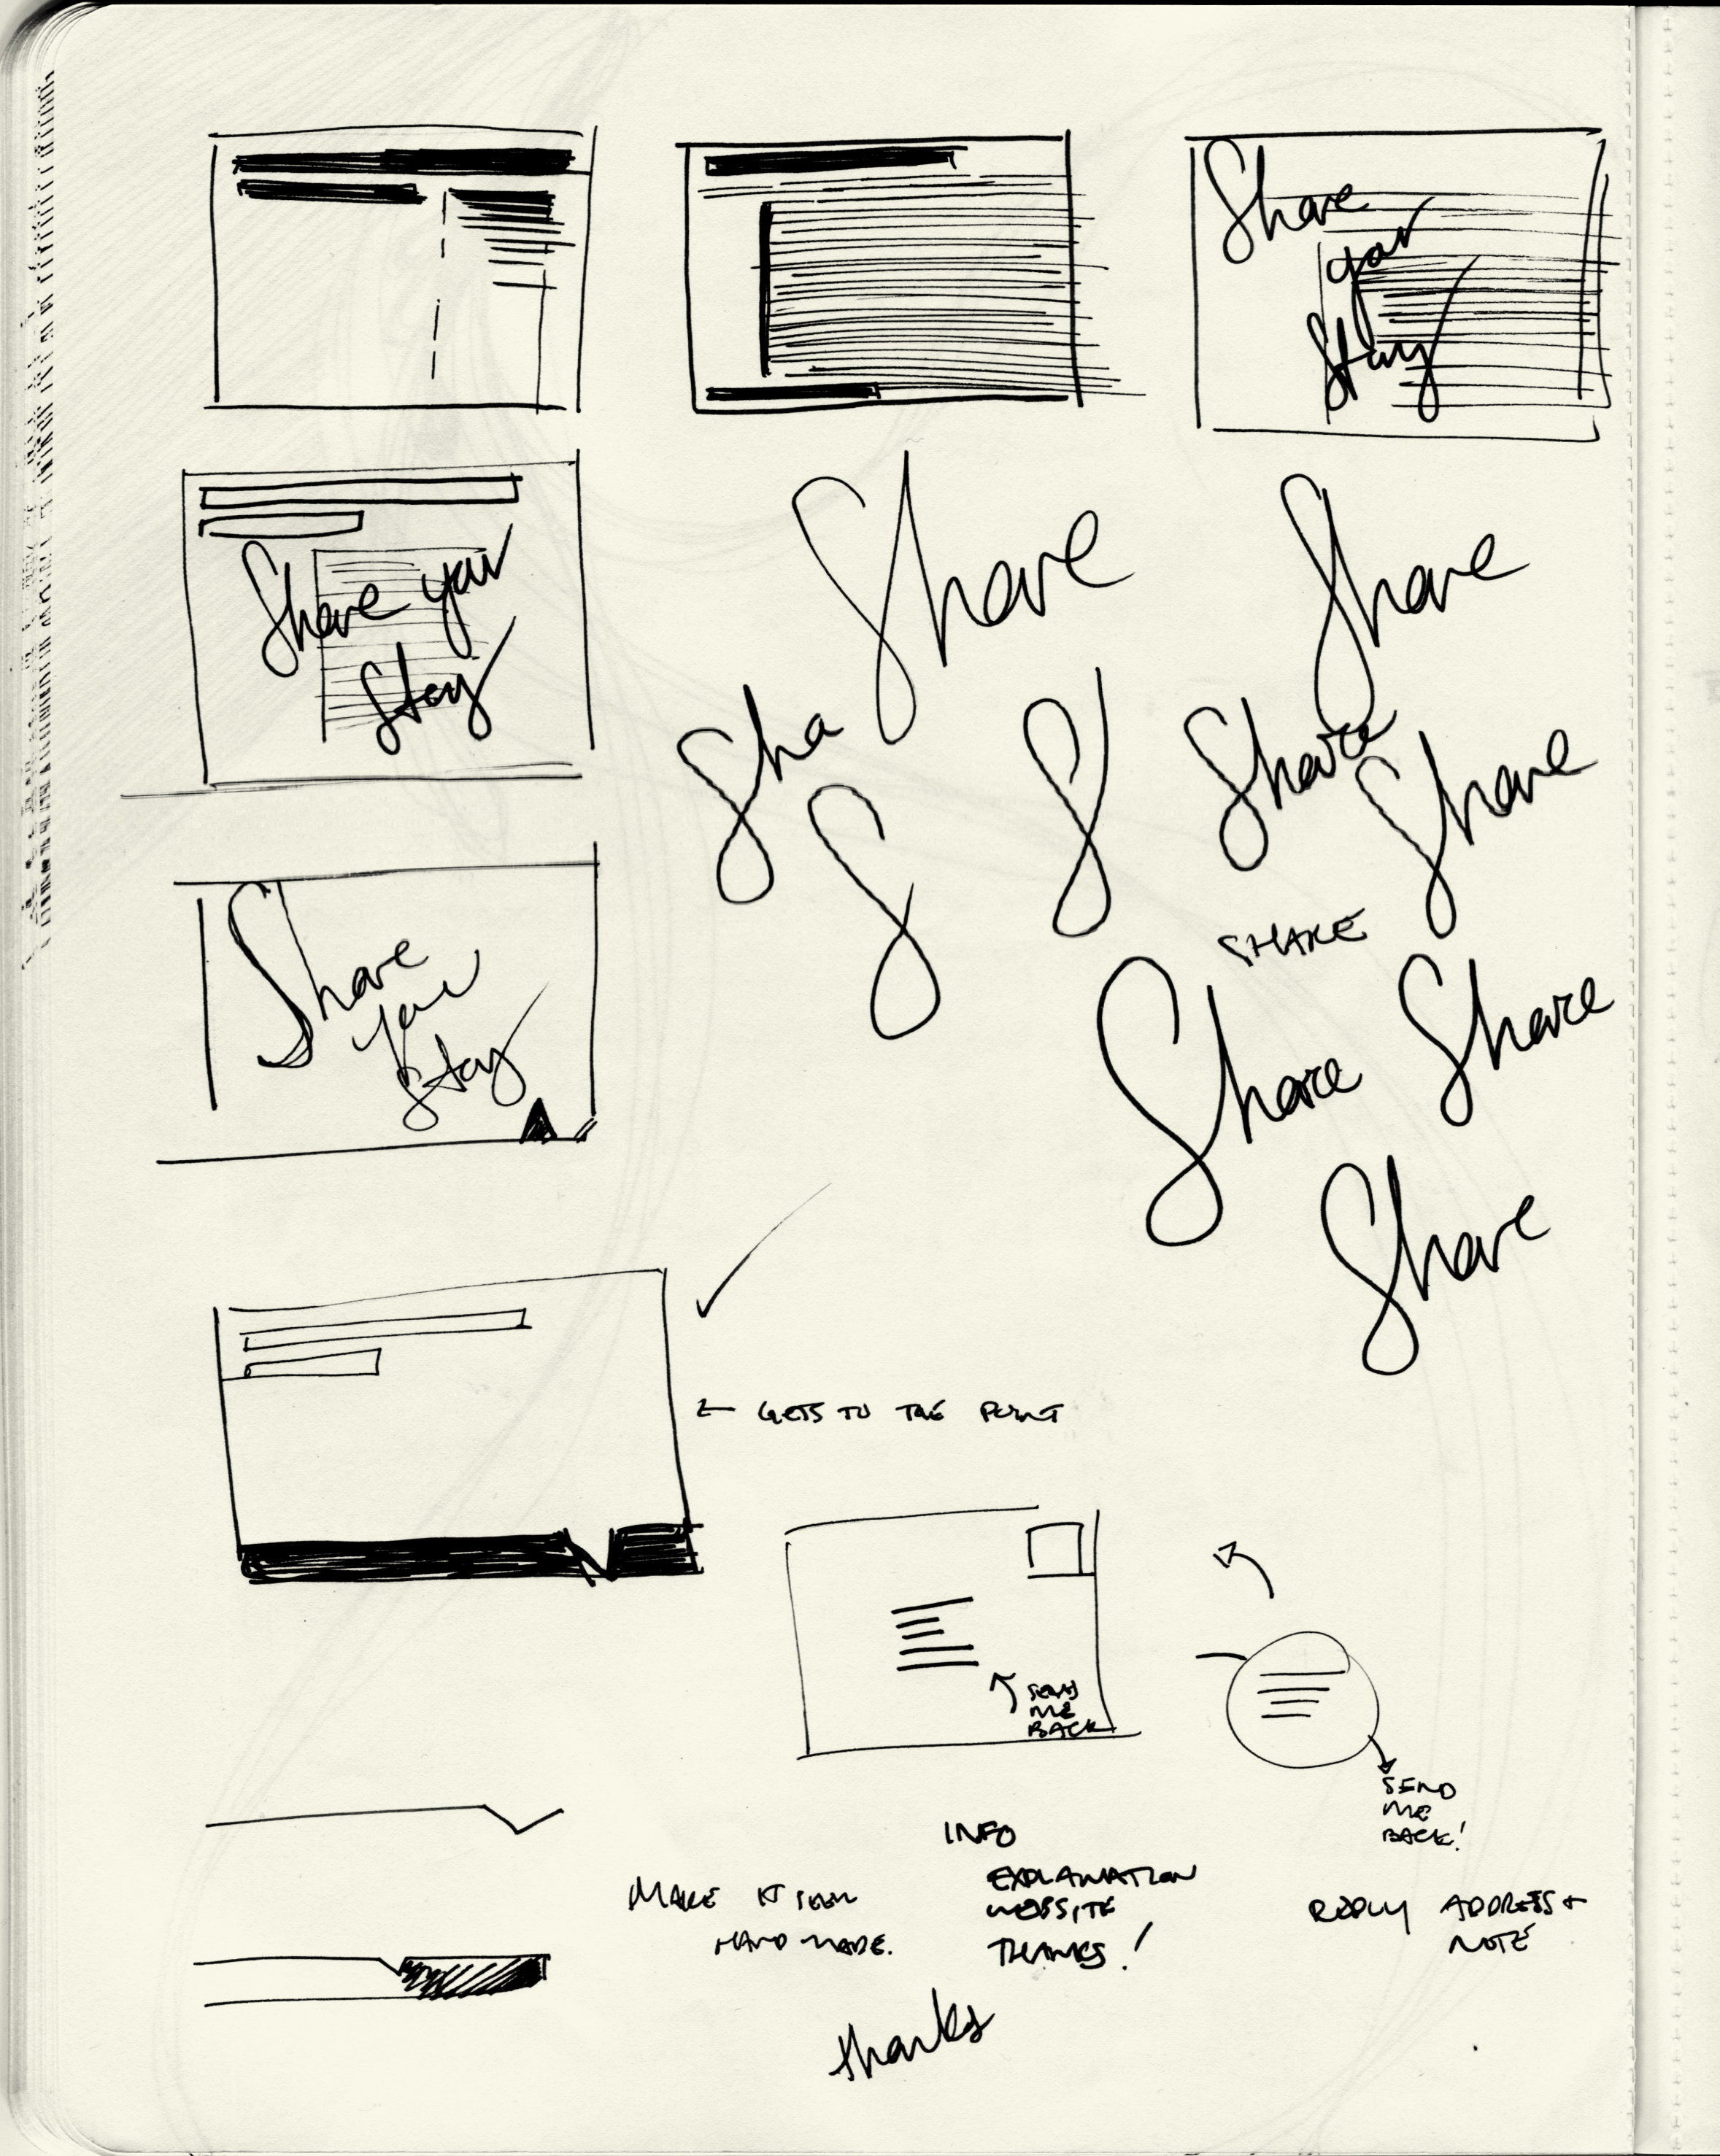 Share
your
Stay
Share your
Stay
Share
Share
Sha
S
Share
S
Share
SHARE
Share
Share
Share
Your
Stay
Share
← GETS TO THE POINT
SEND
ME
BACK
SEND
ME
BACK!
INFO
EXPLANATION
WEBSITE
THANKS!
MAKE IT SEEM
HAND MADE.
REPLY ADDRESS +
NOTE
thanks